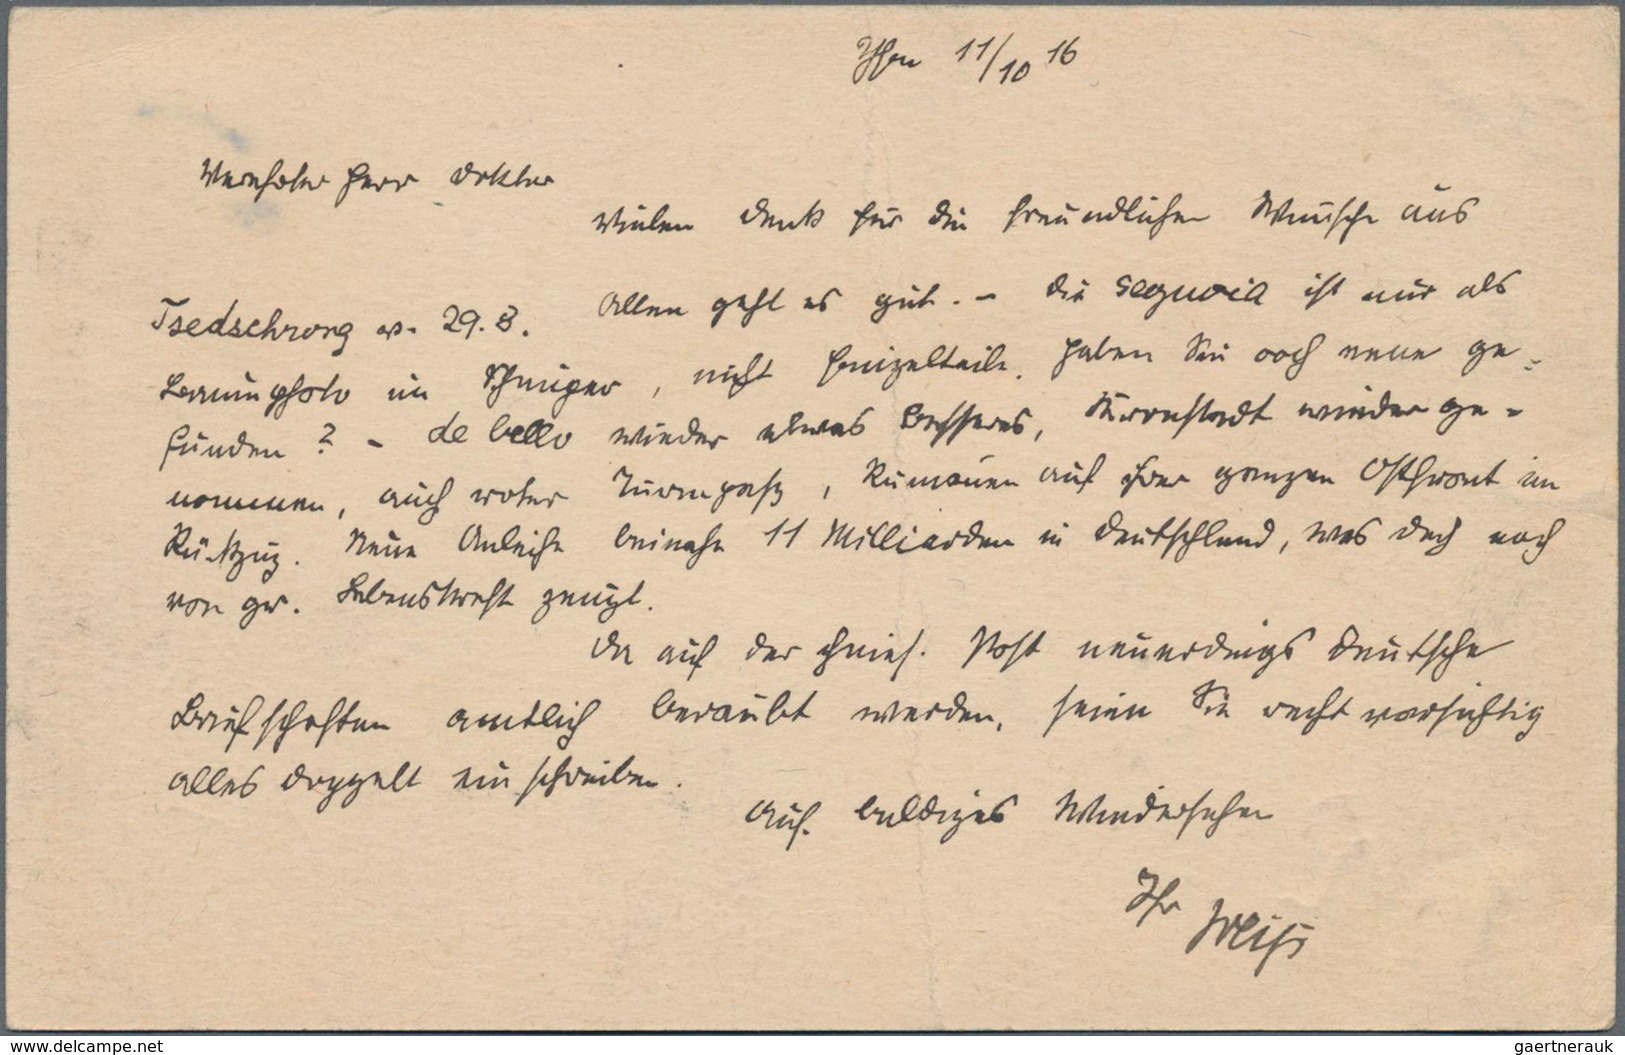 11/10 16
Verehrter Herr Doktor
Vielen Dank für die freundlichen Wünsche aus
Tsedschrong v. 29.8. Allen geht es gut. – Die Sequoia ist nur als
Baumphoto im, nicht Einzelteile. Haben Sie noch neue ge-
funden? – de bello wieder etwas besseres, Kronstadt wieder ge-
nommen, auch roter Turmpaß, Rumänen auf der ganzen Ostfront im
Rückzug. Neue Anleihe beinahe 11 Milliarden in Deutschland, was doch noch
von gr. Lebenskraft zeugt.
Da auf der chines. Post neuerdings deutsche
Briefschaften amtlich beraubt werden, seien Sie recht vorsichtig
alles doppelt einschreiben.
Auf baldiges Wiedersehen
Ihr Weiss
www.delcampe.net
gaertnerauk